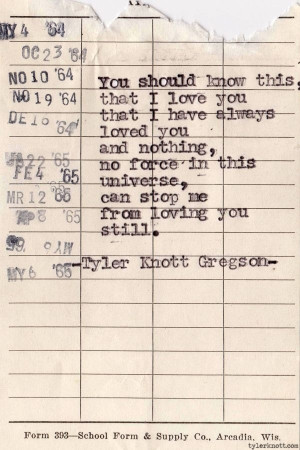 MY 4 '64
OC 23 '64
NO 10 '64
NO 19 '64
DE 16 '64
JA 22 '65
FE 4 '65
MR 12 '65
AP 8 '65
MY 6 '65
You should know this,
that I love you
that I have always
loved you
and nothing,
no force in this
universe,
can stop me
from loving you
still.
-Tyler Knott Gregson-
Form 393—School Form & Supply Co., Arcadia, Wis.
tylerknott.com